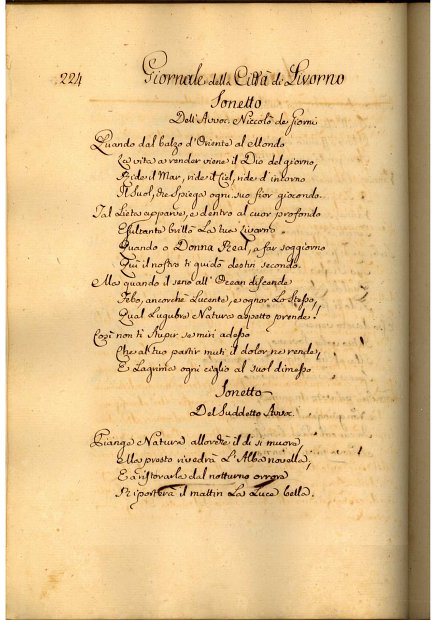 224 Giornale della Città di Livorno
Sonetto
Dell'Avvoc. Niccolò de Giorni
Quando dal balzo d'Oriente al Mondo
La vita a render viene il Dio del giorno,
Ride il Mar, ride il Ciel, ride d'intorno
Il Suol, che spiega ogni suo fior giocondo.
Tal Lieta apparve, e dentro al cuor profondo
Esultante brillò La tua Livorno
Quando o Donna Real, a far soggiorno
Qui il nostro ti guidò destin secondo.
Ma quando il seno all'Ocean discende
Febo, ancorchè Lucente, e ognor Lo Stesso,
Qual Lugubre Natura aspetto prende!
Così non ti stupir se miri adesso
Che al tuo partir muti il dolor ne rende,
E Lagrima ogni ciglio al suol dimesso
Sonetto
Del Suddetto Avvoc.
Piange Natura allorchè il dì si muore,
Ma presto rivedrà L'Alba novella,
E a ristorarla dal notturno orrore
Riporterà il mattin La Luce bella.